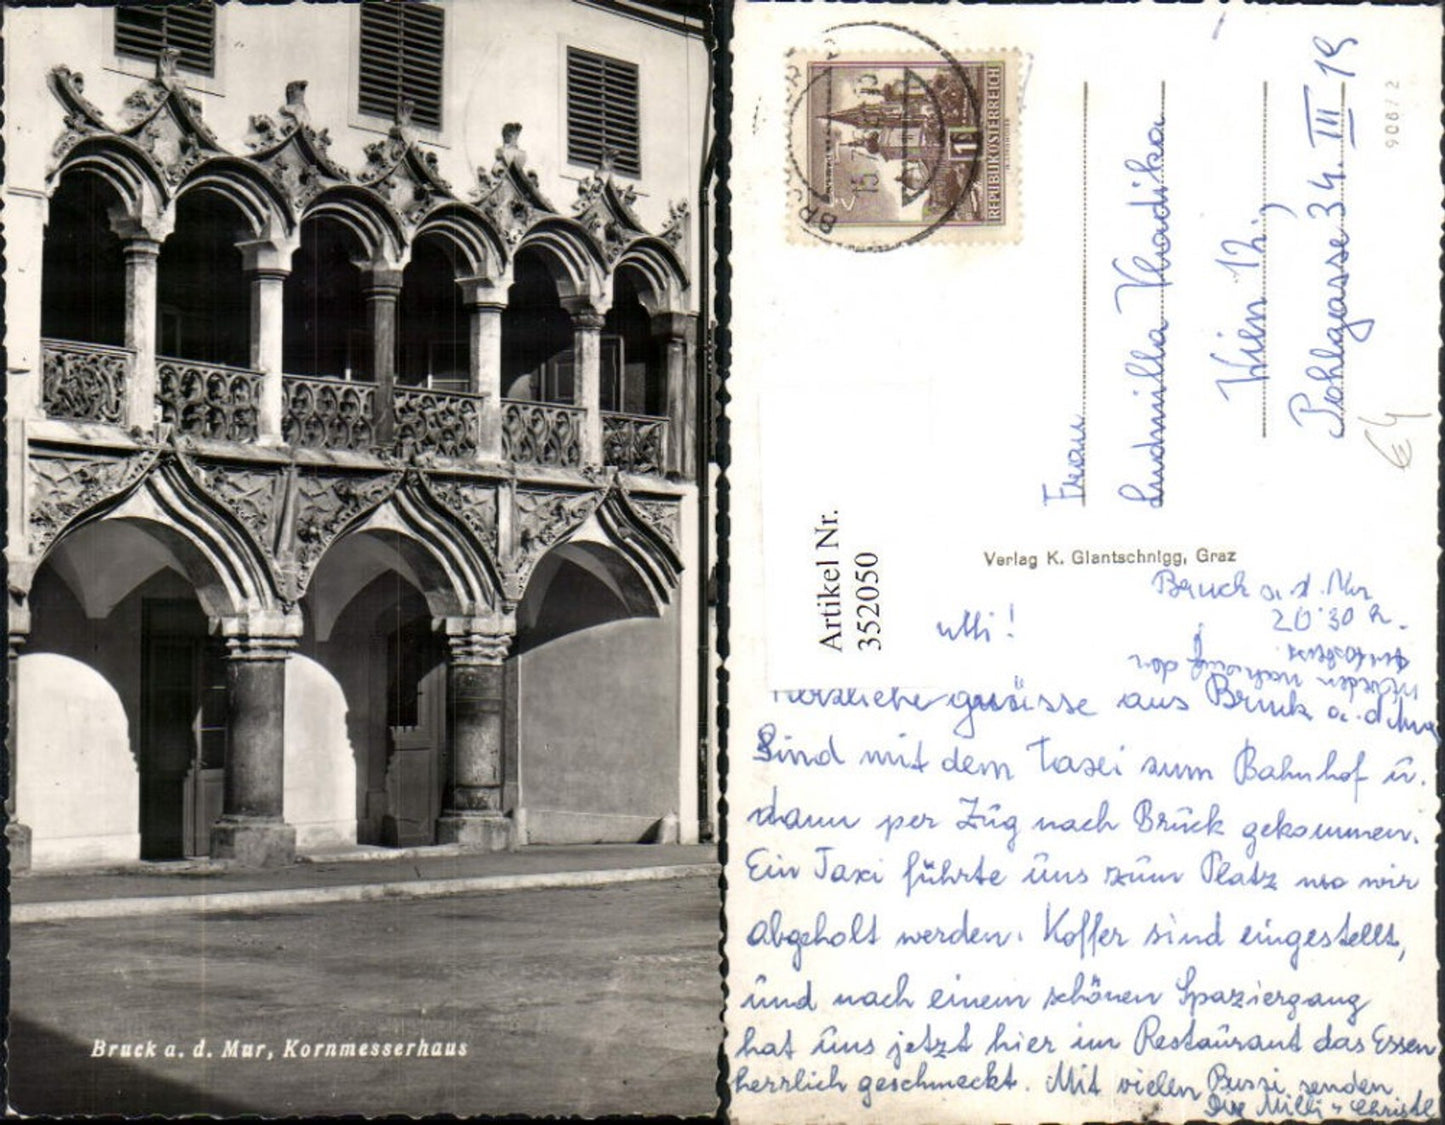 Bruck a. d. Mur, Kornmesserhaus
REPUBLIK ÖSTERREICH
1
90872
Frau
Ludmilla Vladika
Wien 12.,
Pohlgasse 34. III 19
€4
Verlag K. Glantschnigg, Graz
Artikel Nr.
352050
Bruck a. d. Mur
20.30 h.
Herzliche grüsse aus Bruck a. d. Mur
Sind mit dem Taxi zum Bahnhof u.
dann per Zug nach Bruck gekommen.
Ein Taxi führte uns zum Platz wo wir
abgeholt werden. Koffer sind eingestellt,
und nach einem schönen Spaziergang
hat uns jetzt hier im Restaurant das Essen
herrlich geschmeckt. Mit vielen Bussi senden
Milli u. Christl